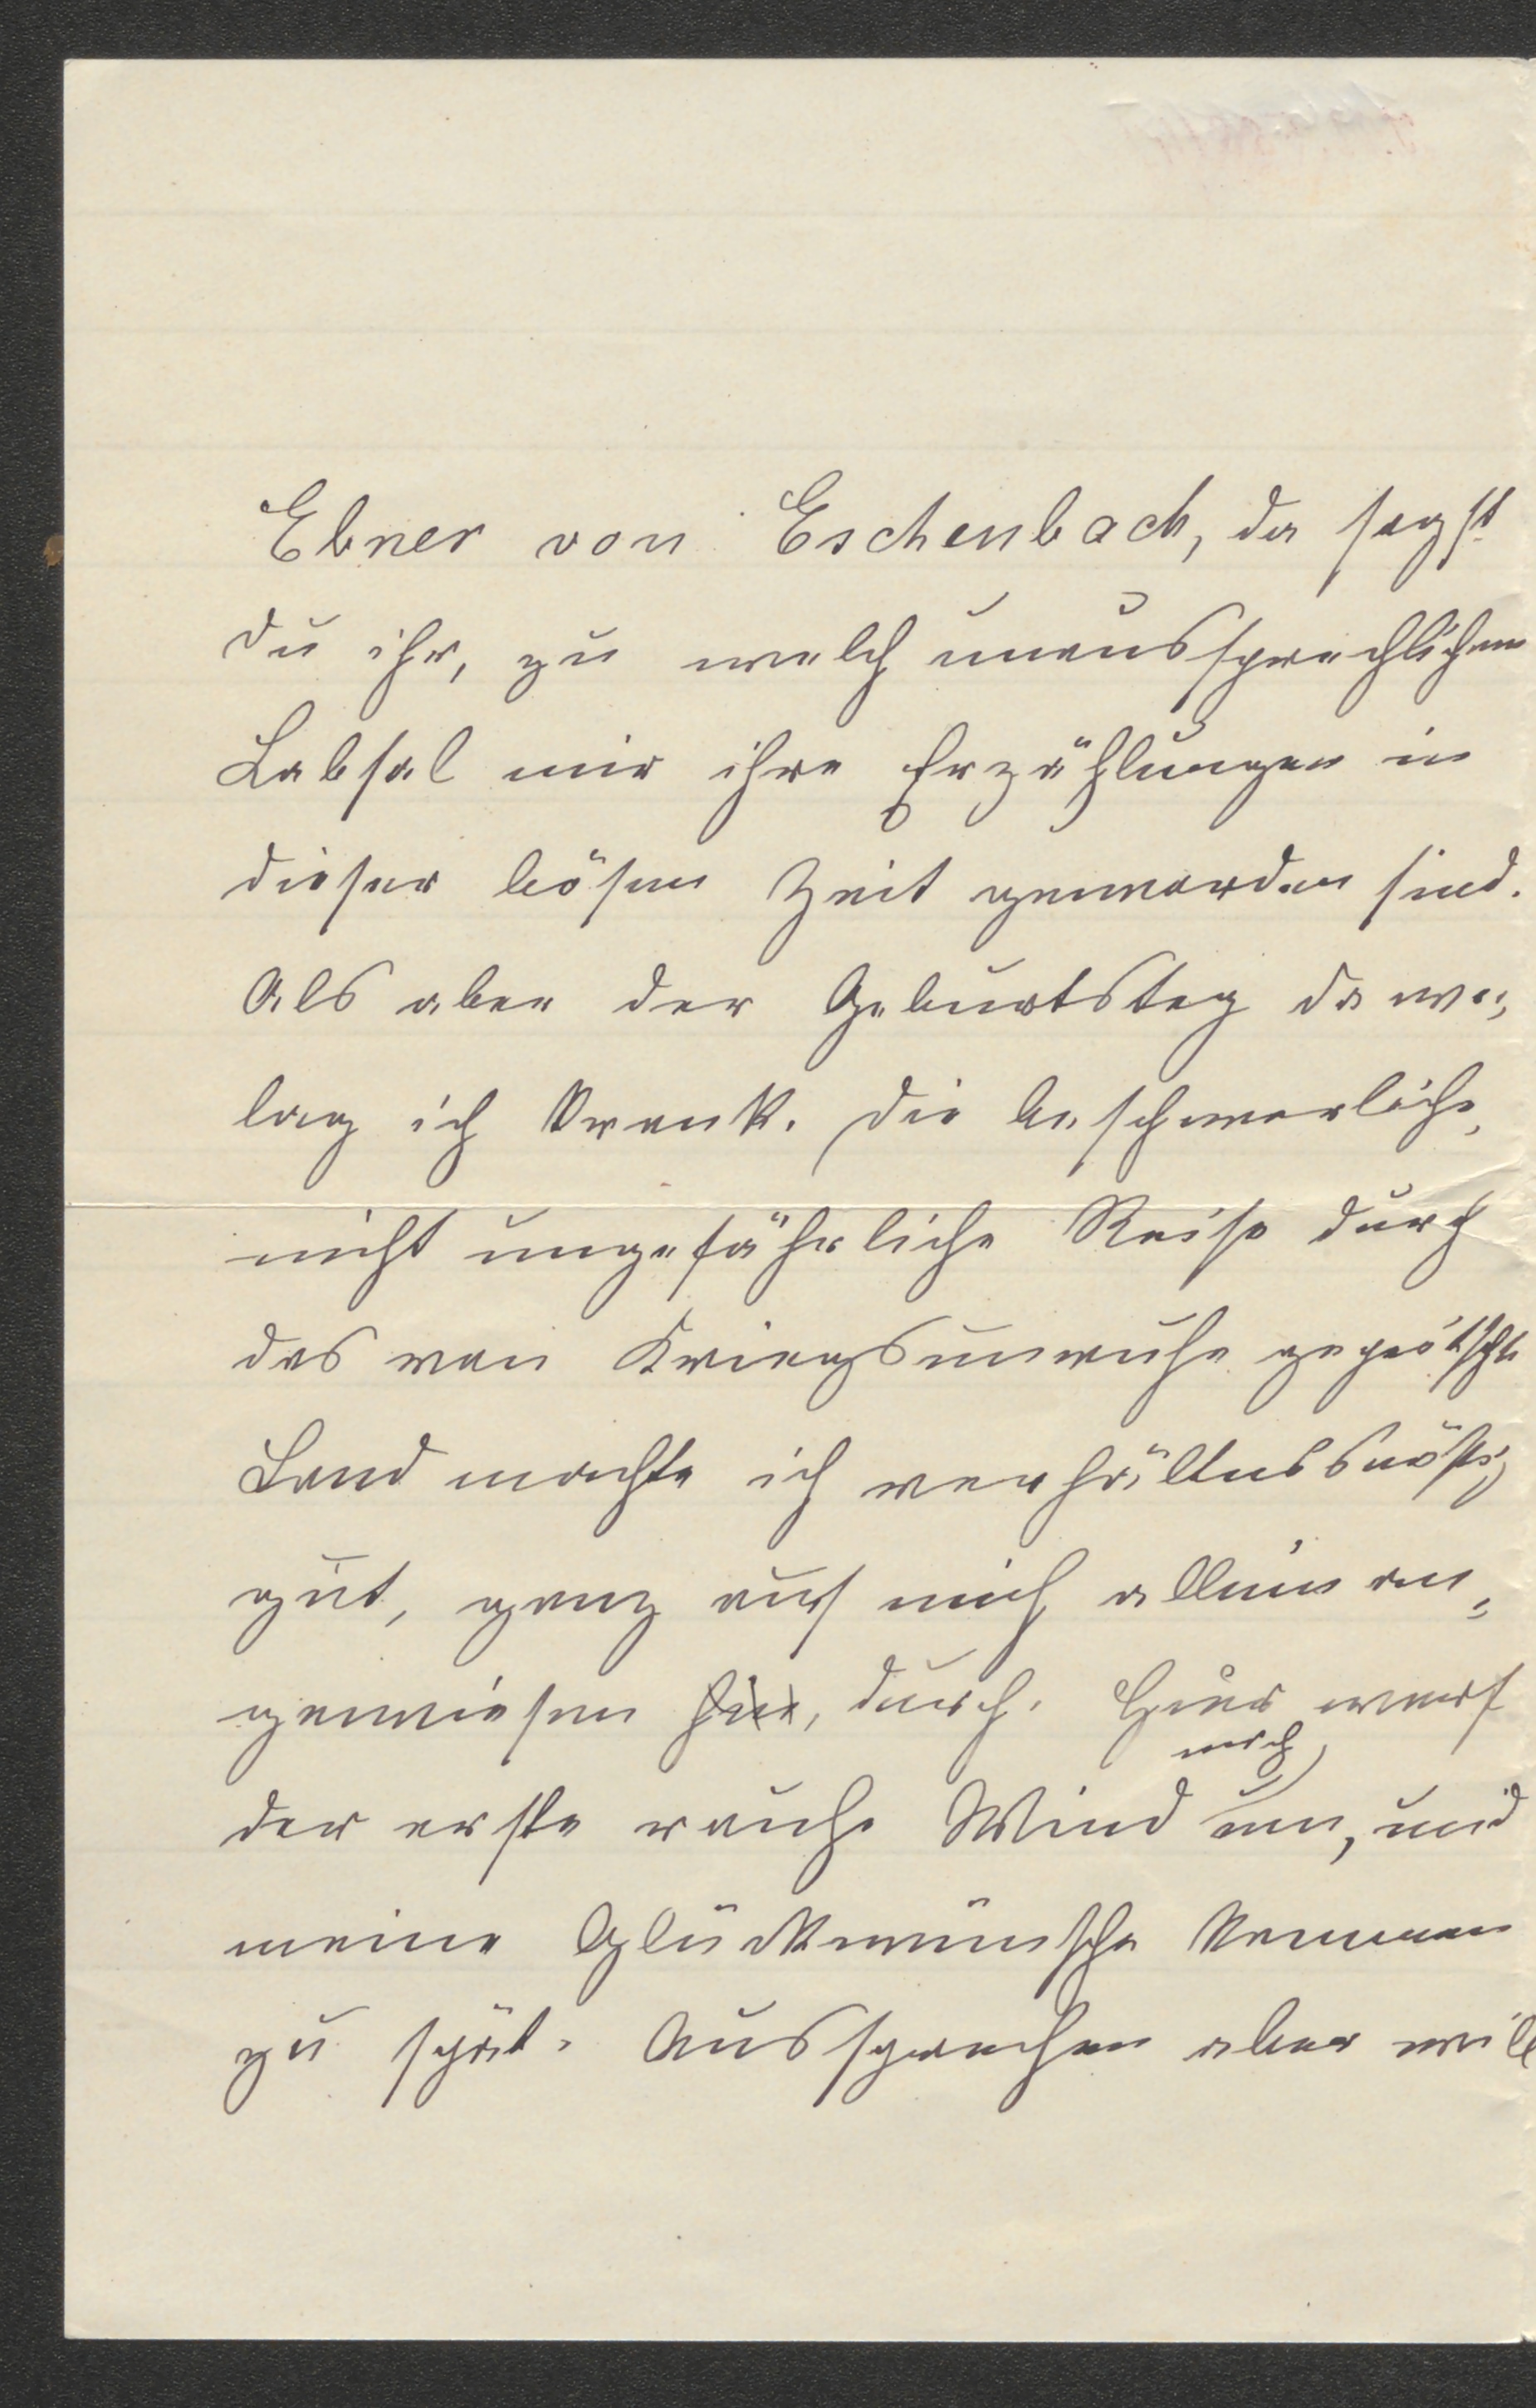 Ebner von Eschenbach, da sagst
Du ihr, zu welch unaussprechlichem
Labsal mir ihre Erzählungen in
dieser bösen Zeit geworden sind.
Als aber der Geburtstag da war,
lag ich krank. Die beschwerliche,
nicht ungefährliche Reise durch
das von Kriegsunruhe gepeitschte
Land machte ich verhältnismäßig
gut, ganz auf mich allein an-
gewiesen, durch. Hier warf
mich
der erste rauhe Wind um, und
meine Glückwünsche kommen
zu spät. Aussprechen aber will